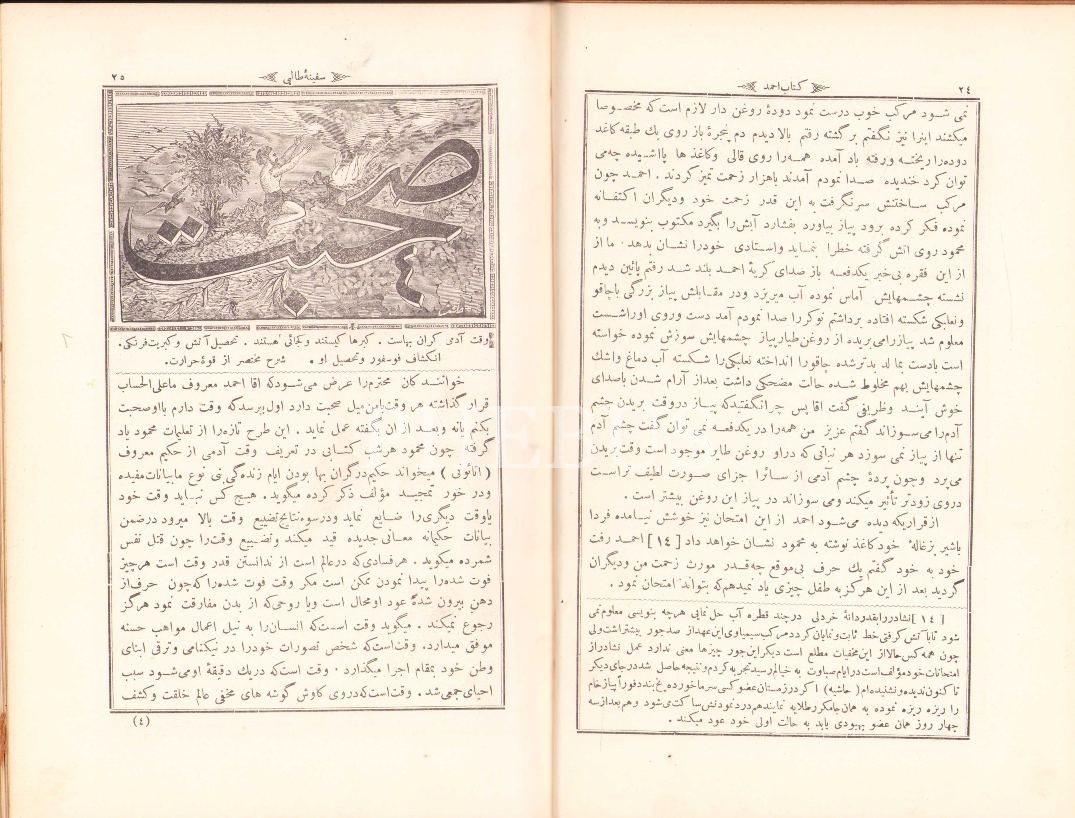 ٢٤
کتاب احمد
نمی شود مرکب خوب درست نمود دودهٔ روغن دار لازم است که مخصوصا
میکشند اینرا نیز نگفتم برگشته رفتم بالا دیدم دم پنجرهٔ باز روی یك طبقه کاغذ
دوده را ریخته ورفته باد آمده همه را روی قالی وکاغذ ها پاشیده چه می
توان کرد خندیده صدا نمودم آمدند باهزار زحمت تمیز کردند . احمد چون
مرکب ساختنش سرنگرفت به این قدر زحمت خود ودیگران اکتفا نه
نموده فکر کرده برود پیاز بیاورد بفشارد آبش را بگیرد مکتوب بنویسد وبه
محمود روی اتش گرفته خط را بنماید واستادی خود را نشان بدهد . ما از
از این فقره بی خبر یکدفعه باز صدای کریهٔ احمد بلند شد رفتم پائین دیدم
نشسته چشمهایش آماس نموده آب میریزد ودر مقابلش پیاز بزرگی باچاقو
ونعلبکی شکسته افتاده برداشتم نوکر را صدا نمودم آمد دست وروی اورا شست
معلوم شد پیاز را می بریده از روغن طیار پیاز چشمهایش سوزش نموده خواسته
است بادست بمالد بدتر شده چاقو را انداخته نعلبکی را شکسته آب دماغ واشك
چشمهایش بهم مخلوط شده حالت مضحکی داشت بعد از آرام شدن باصدای
خوش آیند وظریفی گفت اقا پس چرا نگفتید که پیاز دروقت بریدن چشم
آدم را می سوزاند گفتم عزیز من همه را در یکدفعه نمی توان گفت چشم آدم
تنها از پیاز نمی سوزد هر نباتی که دراو روغن طایر موجود است وقت بریدن
می پرد وچون پردهٔ چشم آدمی از سائرا جزای صورت لطیف تر است
در وی زودتر تأثیر میکند ومی سوزاند در پیاز این روغن بیشتر است .
ازقراریکه دیده می شود احمد از این امتحان نیز خوشش نیامده فردا
باشیر بزغالهٔ خود کاغذ نوشته به محمود نشان خواهد داد [ ١٤ ] احمد رفت
خود به خود گفتم یك حرف بی موقع چه قدر مورث زحمت من ودیگران
گردید بعد از این هرگز به طفل چیزی یاد نمیدهم که بتواند امتحان نمود .
[ ١٤ ] نشادر را بقدر دانهٔ خردلی در چند قطره آب حل نمائی هرچه بنویسی معلوم نمی
شود تا با آتش گرفتی خط ثابت ونمایان گردد مرکب سیمیاوی این عهد از صد جور بیشتر است ولی
چون همه کس حالا از این مخفیات مطلع است دیگر این جور چیزها معنی ندارد عمل نشادر از
امتحانات خود مؤلف است در ایام صباوت به خیالم رسید تجربه کردم ونتیجه حاصل شد در جای دیگر
تا کنون ندیده ونشنیده ام ( حاشیه ) اگر در زمستان عضو کسی سرما خورده یخ بندد فوراً پیاز خام
را ریزه ریزه نموده به همان جا مکرر طلایه نمایند هم درد نمودنش ساکت می شود وهم بعد از سه
چهار روز همان عضو بهبودی یابد به حالت اولی خود عود میکند .
سفینهٔ طالبی
٢٥
صحبت
وقت آدمی گران بهاست . گبرها کیستند وکجائی هستند . تحصیل آتش وکبریت فرنگی .
انکشاف فوسفور وتحصیل او . شرح مختصر از قوهٔ حرارت .
خوانندکان محترم را عرض می شود که اقا احمد معروف ما علی الحساب
قرار گذاشته هر وقت بامن میل صحبت دارد اول بپرسد که وقت دارم بااو صحبت
بکنم یانه وبعد از آن بگفته عمل نماید . این طرح تازه را از تعلیمات محمود یاد
گرفته چون محمود هر شب کتابی در تعریف وقت آدمی از حکیم معروف
( اتائونی ) میخواند حکیم درگران بها بودن ایام زنده گی بنی نوع ما بیانات مفیده
ودر خور تمجید مؤلف ذکر کرده میگوید . هیچ کس نباید وقت خود
یاوقت دیگری را ضایع نماید ودرسوء نتایج تضییع وقت بالا میرود درضمن
بیانات حکیمانه معانی جدیده قید میکند وتضییع وقت را چون قتل نفس
شمرده میگوید . هر فسادی که درعالم است از ندانستن قدر وقت است هر چیز
فوت شده را پیدا نمودن ممکن است مکر وقت فوت شده را که چون حرف از
دهن بیرون شده عود او محال است ویا روحی که از بدن مفارقت نمود هرگز
رجوع نمیکند . میگوید وقت است که انسان را به نیل اعمال مواهب حسنه
موفق میدارد . وقت است که شخص تصورات خود را در نیکنامی وترقی ابنای
وطن خود بمقام اجرا میگذارد . وقت است که دریك دقیقهٔ او می شود سبب
احیای جمعی شد . وقت است که در وی کاوش گوشه های مخفی عالم خلقت وکشف
(٤)